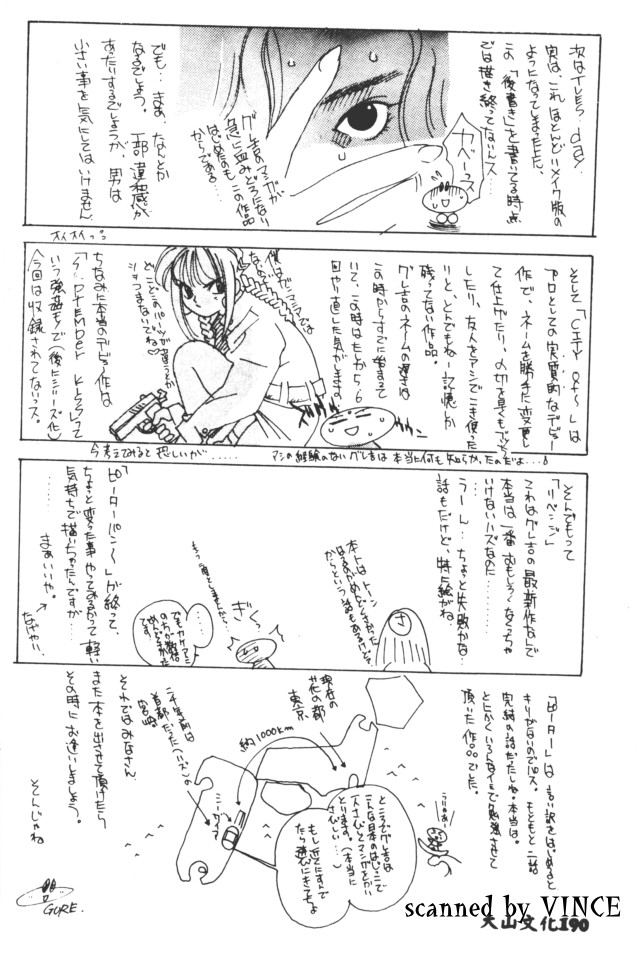 次はTLES day
実は、これほとんどリメイク版の
ようになってしまった上、
この「後書き」を書いてる時点
では描き終ってないんス…
ガベーッス
グレ吉のマンガが
急に血みどろになり
はじめたのも、この作品
からである…
でも…まぁ、なんとか
なるでしょう。一部違和感が
あたりするでしょうが、男は
小さい事を気にしてはいけません
そして「CITY OF〜」は
プロとしての実質的なデビュー
作で、ネームを勝手に変更し
て仕上げたり、〆切を見くもって
したり、友人をアシでこき使った
りと、とんでもねー記憶が
残ってない作品。
グレ吉のネームの遅さは
この時からすでに始まって
いて、この時はたしか5、6
回やり直した気がします。
僕はガンマニアでは
ないので
どこどこのパーツが違うとか
ツッコまないでね♡
ちなみに本当のデビュー作は
いう強姦モノで(後にシリーズ化)
今回は収録されてないっス。
今考えてみると恐しいが……
アシの経験のないグレ吉は本当に何も知らなかったのだよ…
そんでもって
「リベンジ」
これはグレ吉の最新作なんで
本当は一番おもしろくなくっちゃ
いけないハズなのに…
うーん…ちょっと失敗かな…
話もだけど、特に絵がね
本トはトーン
はるのがめんどくさかった
からという話もあるけど…
さ
ぎく。
もう二度としませんから。
「ピーターパン〜」が終って、
ちょっと変った事やってみるかって軽い
気持ちで描いちゃったんですが…
まぁいいや。
「ピーター」は言い訳をはじめると
キリがないのでパス。もともと二話
完結の話だったしね。本当は。
とにかくいろんなイミで勉強させて
頂いた作品でした。
現在の
花の都
東京
約1000km
二千年前は
首都だった(ハズ)の
宮崎
ところでグレ吉は
こんな日本のはじっこで
一人さみしくマンガをかい
とります。(本当に
さびしい…)
もし近くにすんで
たら遊びにきてちょ
それではみなさん
また本を出させて頂けたら
その時にお逢いしましょう。
そんじゃね
GURE.
scanned by VINCE
天山文化 190